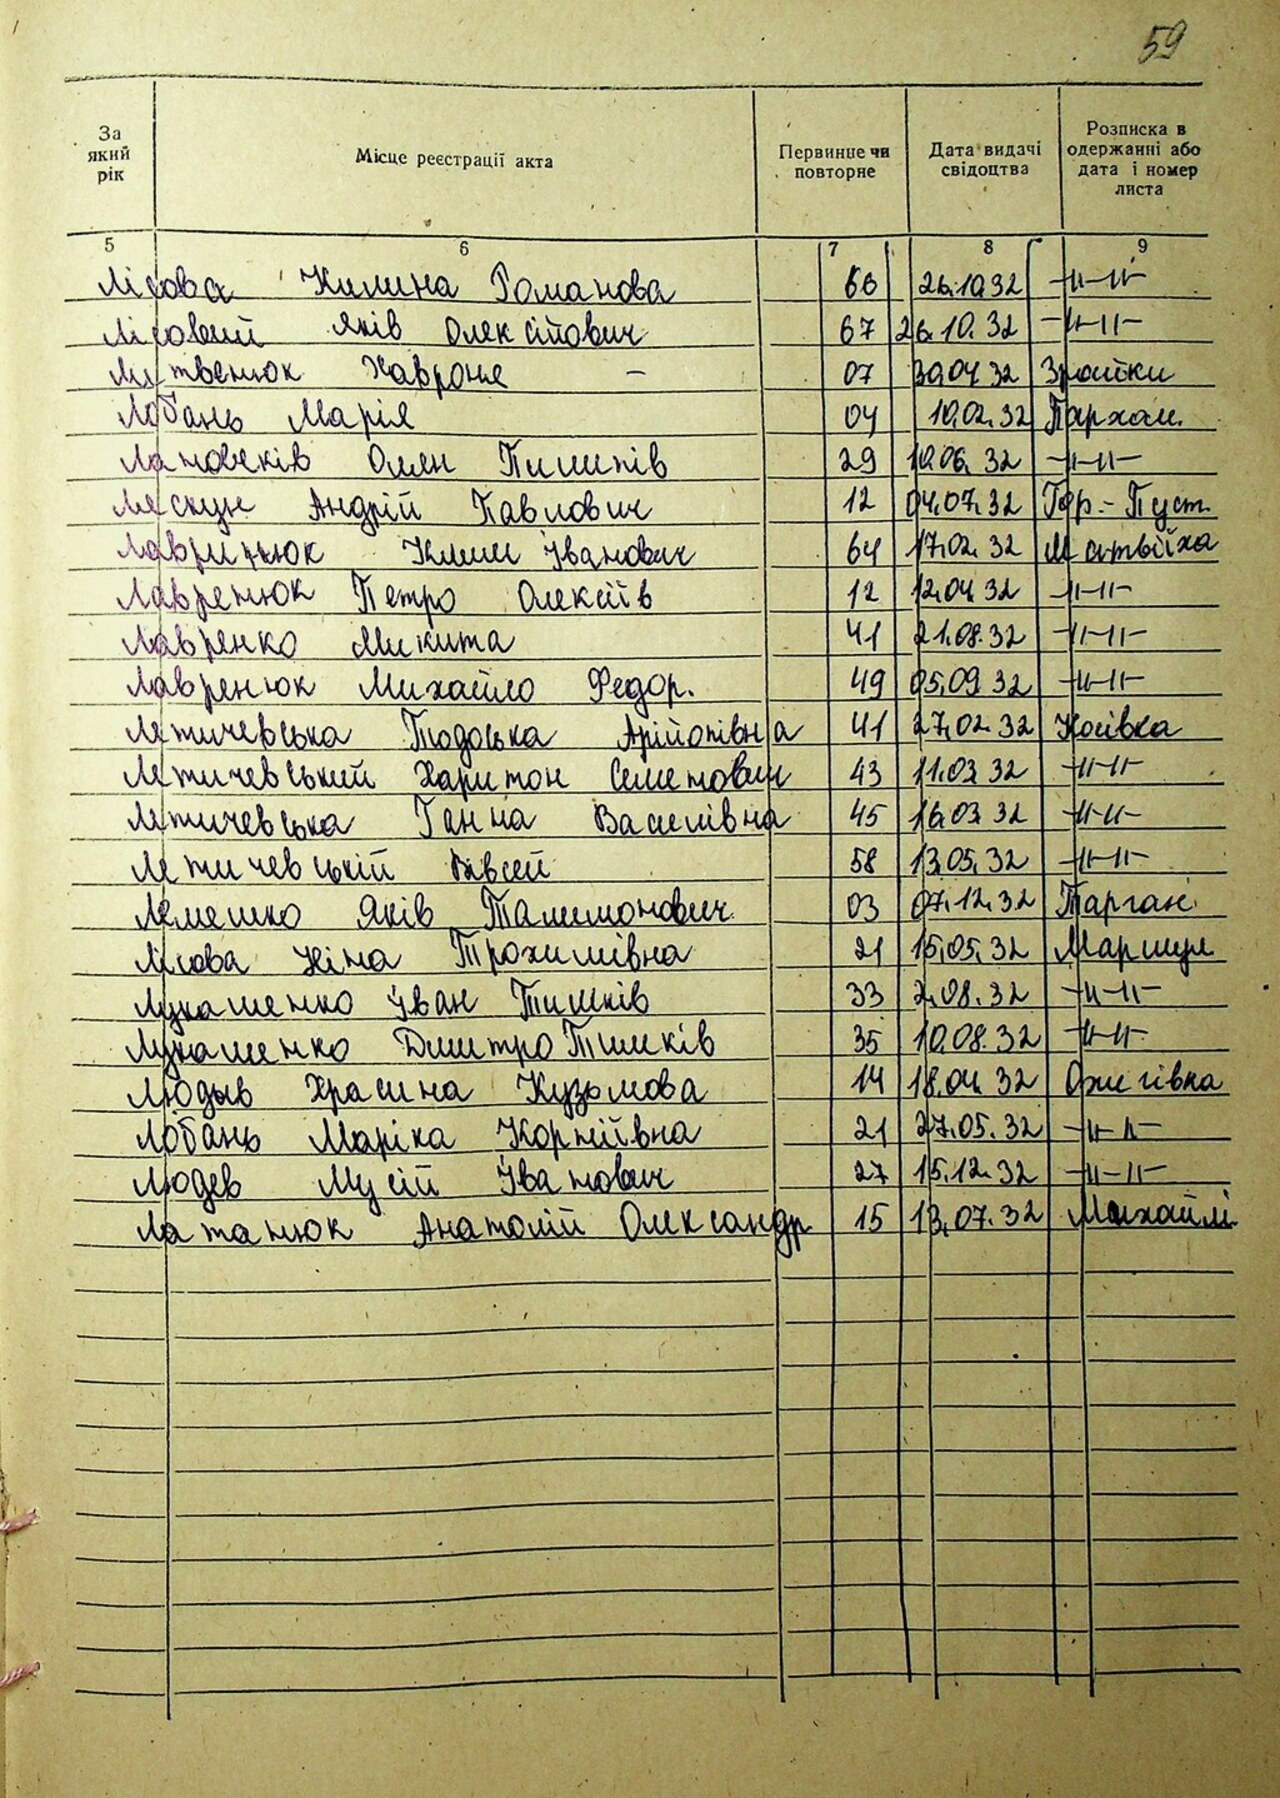 59
За який рік Місце реєстрації акта Первинне чи повторне Дата видачі свідоцтва Розписка в одержанні або дата і номер листа
5 6 7 8 9
Лісова Килина Романова 66 26.10.32 -//-//-
Лісовий Яків Олексійович 67 26.10.32 -//-//-
Литвенюк Хавроне - 07 30.04.32
Лобань Марія 04 10.02.32 Пархом.
Олян Пилипів 29 10.06.32 -//-//-
Андрій Павлович 12 04.07.32 Гор.-Пуст.
Лавринюк Клим Іванович 64 17.02.32 Матвіїха
Лавренюк Петро Олексіїв 12 12.04.32 -//-//-
Лавренко Микита 41 21.08.32 -//-//-
Лавренюк Михайло Федор. 49 05.09.32 -//-//-
Летичевська Тодоська 41 27.02.32 Косівка
Летичевський Харитон Семенович 43 11.03.32 -//-//-
Летичевська Ганна Василівна 45 16.03.32 -//-//-
Летичевській Євсей 58 13.05.32 -//-//-
Лемешко Яків 03 07.12.32 Тарган.
Лісова Ніна Трохимівна 21 15.05.32
Лукашенко Іван Тимків 33 2.08.32 -//-//-
Лукашенко Дмитро Тимків 35 10.08.32 -//-//-
Людыв Храсина Кузьмова 14 18.04.32
Лобань Маріка Корніївна 21 27.05.32 -//-//-
Людев Мусій Іванович 27 15.12.32 -//-//-
Латанюк Анатолій Олександр 15 13.07.32 Михайлі